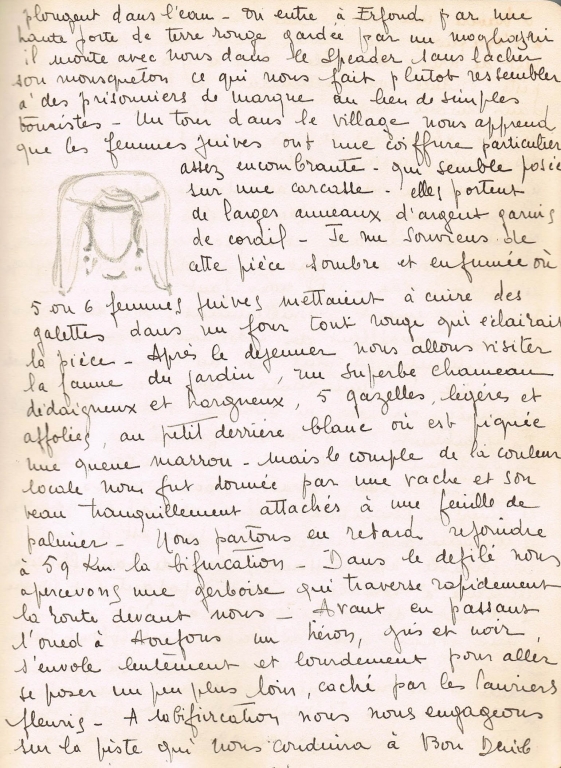 plongent dans l'eau - On entre à Erfond par une
haute porte de terre rouge gardée par un moghazni
il monte avec nous dans le Speader sans lacher
son mousqueton ce qui nous fait plutot ressembler
à des prisonniers de marque au lieu de simples
touristes - Un tour dans le village nous apprend
que les femmes juives ont une coiffure particulier
assez encombrante - qui semble posée
sur une carcasse - elles portent
de larges anneaux d'argent garnis
de corail - Je me souviens de
cette pièce sombre et enfumée où
5 ou 6 femmes juives mettaient à cuire des
galettes dans un four tout rouge qui éclairait
la pièce - Après le dejeuner nous allons visiter
la faune du jardin, un superbe chameau
dédaigneux et hargneux, 5 gazelles, légères et
affolées, au petit derrière blanc où est piquée
une queue marron - mais le comple de la couleur
locale nous fut donnée par une vache et son
veau tranquillement attachés à une feuille de
palmier - Nous partons en retard rejoindre
à 59 Km. la bifurcation - Dans le defilé nous
apercevons une gerboise qui traverse rapidement
la route devant nous - Avant en passant
l'oued à Aoufous un héron, gris et noir,
s'envole lentement et lourdement pour aller
se poser un peu plus loin, caché par les lauriers
fleuris - A la bifurcation nous nous engageons
sur la piste qui nous conduira à Bou Denib